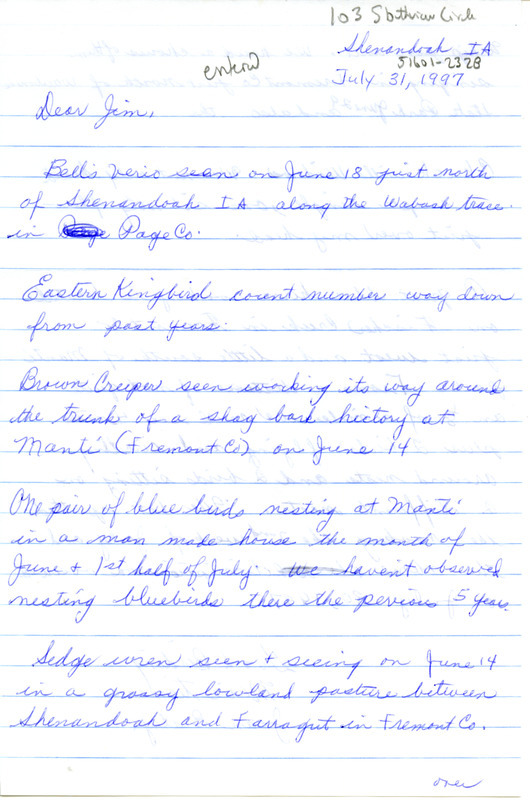 103 Southview Circle
Shenandoah IA
51601-2328
July 31, 1997
Dear Jim,
Bell's verio seen on June 18 just north
of Shenandoah IA along the Wabash trace
in Page Co.
Eastern Kingbird count number way down
from past years.
Brown Creeper seen working its way around
the trunk of a shag bark hictory at
Manti (Fremont Co) on June 14
One pair of blue birds nesting at Manti
in a man made house the month of
June + 1st half of July. We haven't observed
nesting bluebirds there the pervious 5 years.
Sedge wren seen + seeing on June 14
in a grassy lowland pasture between
Shenandoah and Farragut in Fremont Co.
over